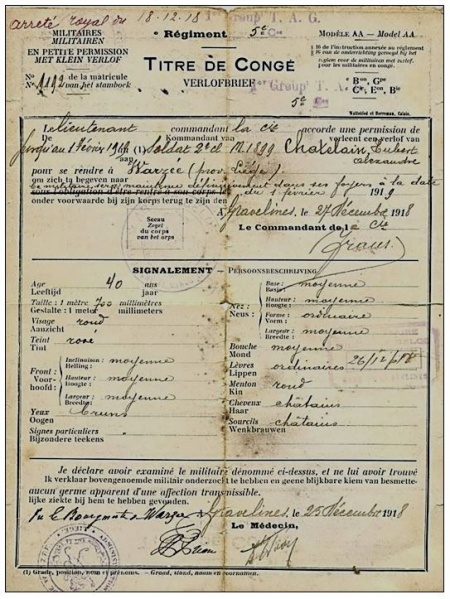 Arrêté royal du 18.12.18
1er Group T. A. G.
MILITAIRES
MILITAIREN
EN PETITE PERMISSION
MET KLEIN VERLOF
Régiment 5e Cie
MODÈLE AA — Model AA.
N° 1199 de la matricule
N° van het stamboek
TITRE DE CONGÉ
VERLOFBRIEF
1er Group T. A.
5e Cie
Bon, Gpe
Cie, Eon, Bie
Le lieutenant commandant la Cie accorde une permission de
De Kommandant van verleent een verlof van
jusqu'au 1 février 1919 (1) Soldat 2e cl. M. 1899 Chatelain, Hubert
aan Alexandre
pour se rendre à Warzée (prov. Liège)
om zich te begeven naar
ce militaire sera maintenu définitivement dans ses foyers à la date
sous l'obligation d'être rentré à son corps le du 1 février 1919
onder voorwaarde bij zijn korps terug te zijn den
A Gravelines, le 27 Décembre 1918
Le Commandant de la Cie
Sceau
Zegel
du corps
van het corps
SIGNALEMENT — PERSOONSBESCHRIJVING
Age 40 ans
Leeftijd jaar
Taille : 1 mètre 700 millimètres
Gestalte : 1 meter millimeters
Visage rond
Aanzicht
Teint rosé
Tint
Front :
Voorhoofd :
Inclinaison : moyenne
Helling :
Hauteur : moyenne
Hoogte :
Largeur : moyenne
Breedte :
Yeux bruns
Oogen
Signes particuliers
Bijzondere teekens
Nez :
Neus :
Base : moyenne
Basis :
Hauteur : moyenne
Hoogte :
Forme : ordinaire
Vorm :
Largeur : moyenne
Breedte :
Bouche moyenne
Mond
Lèvres ordinaires
Lippen
26/12/18
Menton rond
Kin
Cheveux châtains
Haar
Sourcils châtains
Wenkbrauwen
Je déclare avoir examiné le militaire dénommé ci-dessus, et ne lui avoir trouvé
Ik verklaar bovengenoemde militair onderzocht te hebben en geene blijkbare kiem van besmette-
aucun germe apparent d'une affection transmissible.
lijke ziekte bij hem te hebben gevonden.
Vu le Bourgmestre de Warzée
A Gravelines, le 25 Décembre 1918
Le Médecin,
(1) Grade, position, nom et prénoms. — Graad, stand, naam en voornamen.